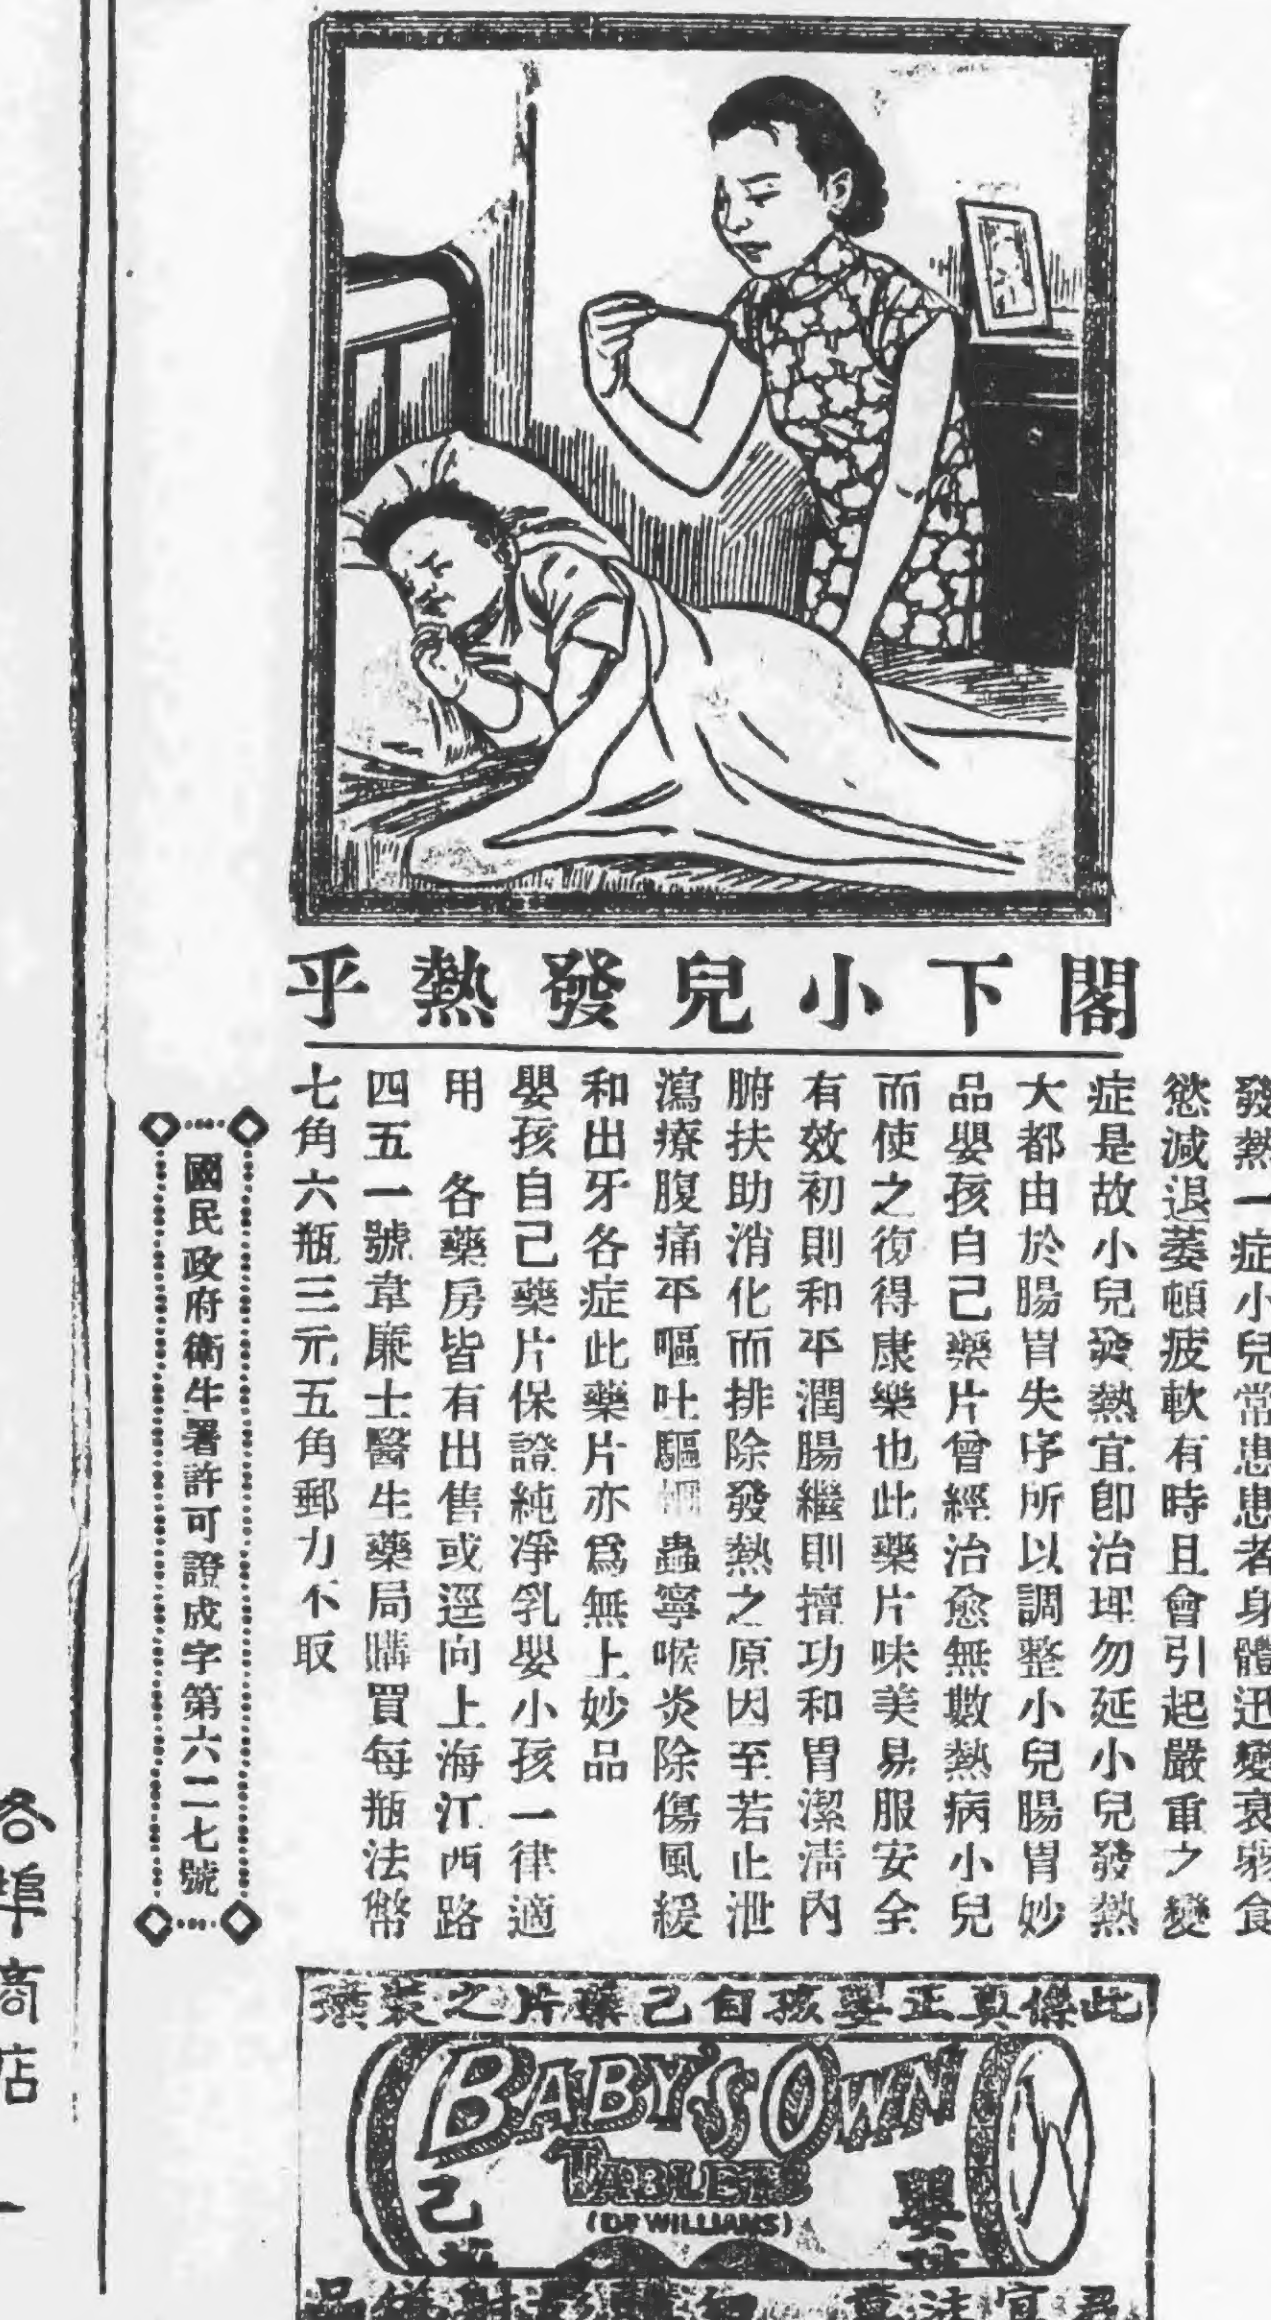 閣下小兒發熱乎
發熱一症小兒常患患者身體迅變衰弱食
慾減退萎頓疲軟有時且會引起嚴重之變
症是故小兒發熱宜卽治理勿延小兒發熱
大都由於腸胃失序所以調整小兒腸胃妙
品嬰孩自己藥片曾經治愈無數熱病小兒
而使之復得康樂也此藥片味美易服安全
有效初則和平潤腸繼則擅功和胃潔淸內
腑扶助消化而排除發熱之原因至若止泄
瀉療腹痛平嘔吐驅蟲寧喉炎除傷風緩
和出牙各症此藥片亦爲無上妙品
嬰孩自己藥片保證純凈乳嬰小孩一律適
用 各藥房皆有出售或逕向上海江西路
四五一號韋廉士醫生藥局購買每瓶法幣
七角六瓶三元五角郵力不取
國民政府衛生署許可證成字第六二七號
此係真正嬰孩自己藥片之裝
BABY'S OWN
TABLETS
(DR WILLIAMS)
嬰
己
各埠商店